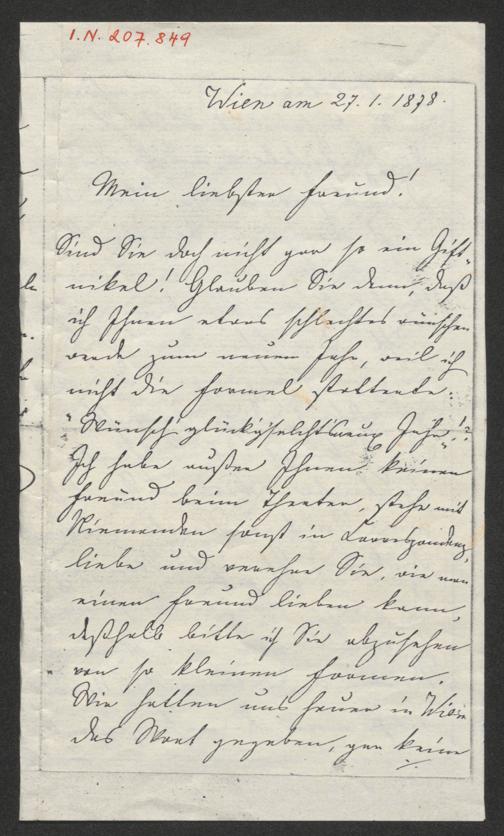 I.N. 207.849
Wien am 27.1.1878.
Mein liebster Freund!
Sind Sie doch nicht gar so ein Gift-
nikel! Glauben Sie denn, daß
ich Ihnen etwas schlechtes wünschen
werde zum neuen Jahr, weil ich
nicht die Formel
"Wünsch' Jahr!?
Ich habe außer Ihnen keinen
Freund beim Theater, stehe mit
Niemanden sonst in Correspondenz,
liebe und verehre Sie, wie man
einen Freund lieben kann,
deßhalb bitte ich Sie abzusehen
von so kleinen Formen.
Wir hatten uns heuer in Wien
das Wort gegeben, gar keine